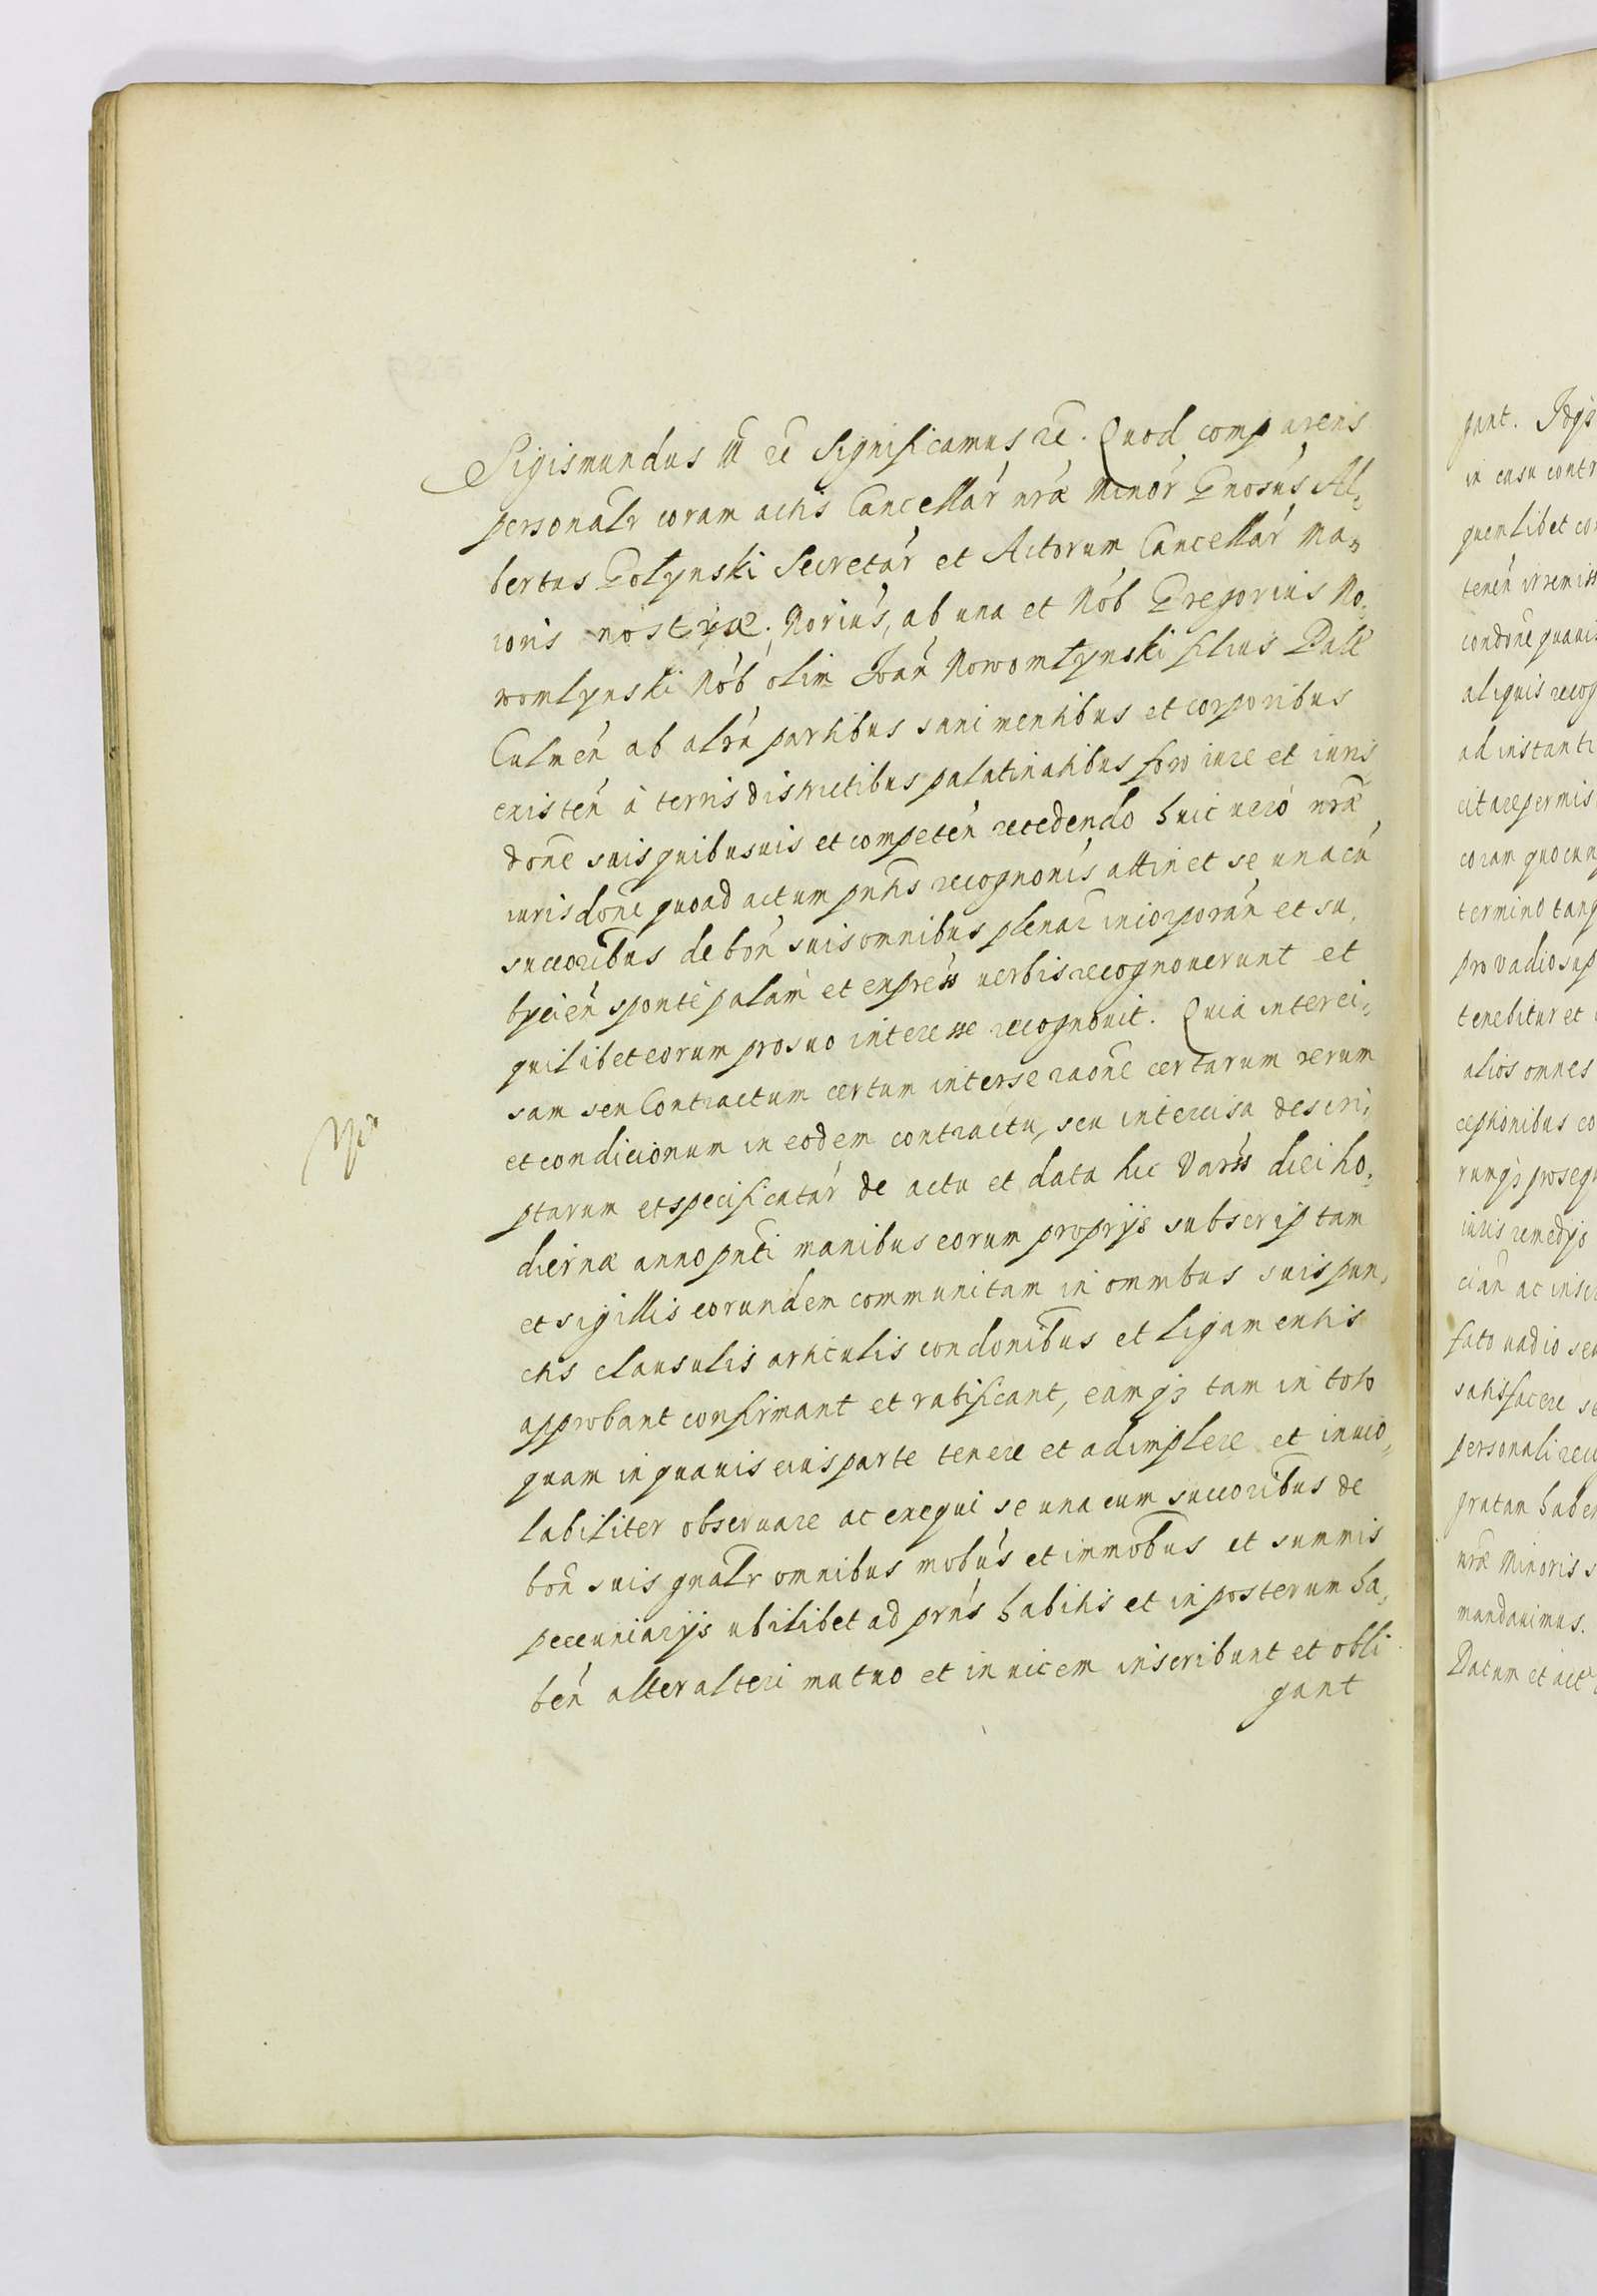 Sigismundus III etc Significamus etc. Quod comparens
personalr coram actis Cancellar nrae Minor Gnosus Al,
bertus Golynski Secretar et Actorum Cancellar Ma,
ioris nostrae. Norius, ab una et Nob Gregorius No,
womlynski Nob olim Joan Nowomlynski filius Palt
Culmen ab altra partibus sani mentibus et corporibus
existen à terris districtibus palatinatibus foro iure et iuris
done suis quibusuis et competen recedendo huic vero nrae
iurisdone quoad actum pntis recognonis attinet se unacu
succoribus de bon suis omnibus plenar incorporan et su,
bycien sponte palam et express verbis recognoverunt et
quilibet eorum pro suo interesse recognovit. Quia interci,
sam seu Contractum certum inter se raone certarum rerum
et condicionum in eodem contractu, seu intercisa descri,
ptarum et specificatar de actu et data hic Vars diei ho,
diernae anno pnti manibus eorum proprijs subscriptam
et sigillis eorundem communitam in omnibus suis pun,
ctis clausulis articulis condonibus et ligamentis
approbant confirmant et ratificant, eamq3 tam in toto
quam in quavis eius parte tenere et adimplere et invio,
labiliter observare ac exequi se una cum succoribus de
bon suis gnalr omnibus mobus et immobus et summis
pecuniarijs ubilibet ad prns habitis et in posterum ha,
ben alter alteri mutuo et invicem inscribunt et obli
gant
gant. Idq3
in casu contr
quemlibet co
tenen irremiss
condone quavis
aliquis recog
ad instanti
citare permis
coram quocun
termino tanq
pro vadio sup
tenebitur et
alios omnes
ceptionibus eo
rumq3 prosequ
iuris remedijs
cian ac inscr
fato vadio seu
satisfacere se
personali recu
gratam haber
nrae Minoris s
mandavimus.
Datum et act